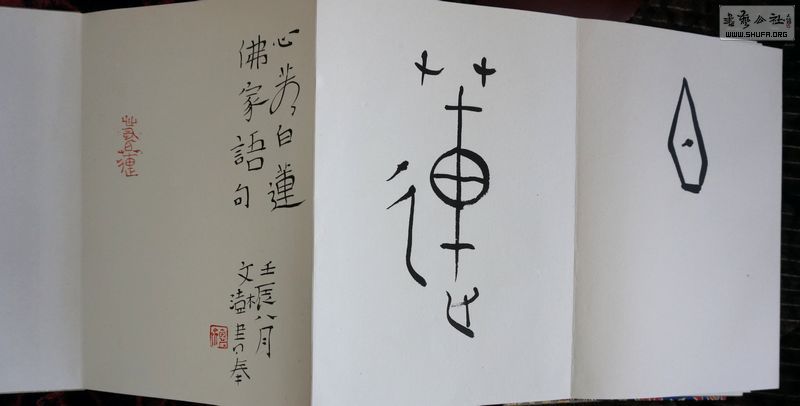 書藝公社
WWW.SHUFA.ORG
白
蓮
心若白蓮
佛家語句
壬辰八月
書奉